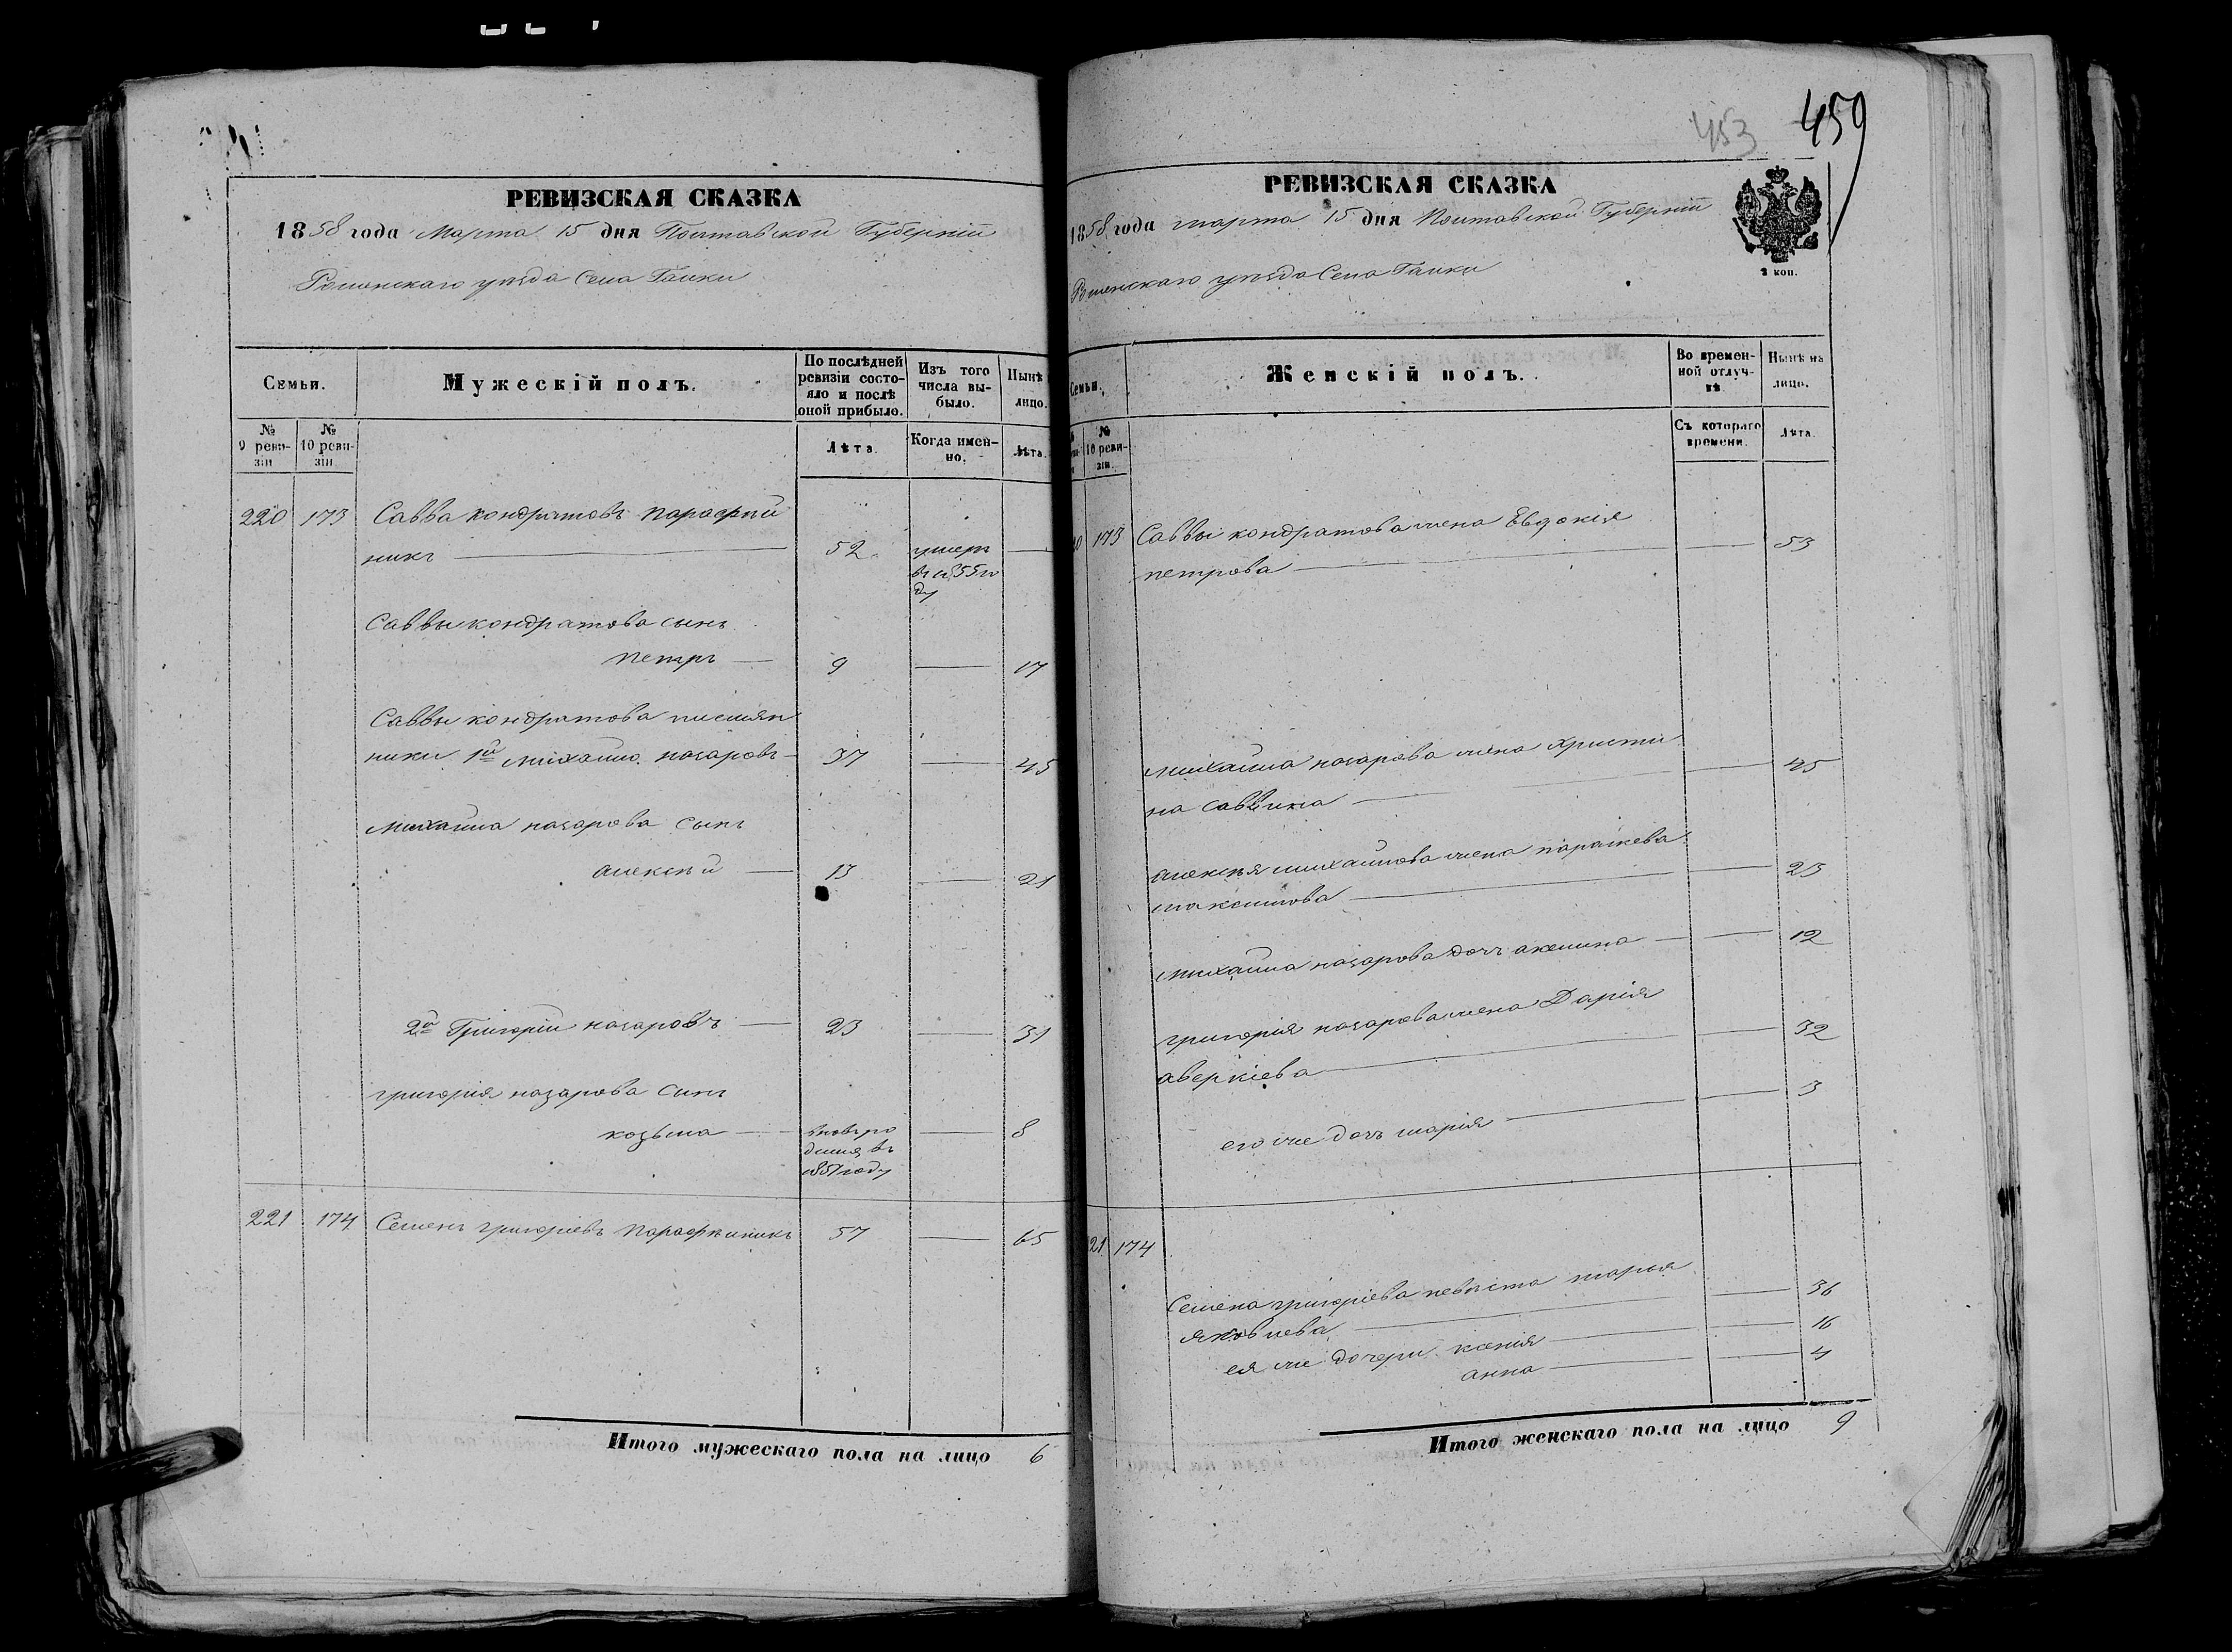 РЕВИЗСКАЯ СКАЗКА
1858 года Марта 15 дня Полтавской Губерніи
Роменскаго уѣзда Села Галки
Семьи.
Мужескій полъ.
По послѣдней ревизіи состояло и послѣ оной прибыло.
Изъ того числа выбыло.
Нынѣ
лицо.
№ 9 ревизіи
№ 10 ревизіи.
Лѣта.
Когда именно.
Лѣта.
220 173 Савва кондратовъ
никъ 52 умеръ
въ 1855 го
ду
Саввы кондратова сынъ
петръ 9 17
Саввы кондратова племян
ники 1й михайло назаровъ 37 45
михайла назарова сынъ
алексѣй 13 21
2й Григорій назаровъ 23 31
григорія назарова сынъ
козьма вновь ро 8
въ
году
221 174 Семенъ григоріевъ 57 65
Итого мужескаго пола на лицо 6
453 459
РЕВИЗСКАЯ СКАЗКА
1858 года марта 15 дня Полтавской Губерніи
Роменскаго уѣзда Села Галки
2 коп.
Семьи.
Женскій полъ.
Во временной отлучкѣ.
Нынѣ на лицо.
№ 10 ревизіи.
Съ котораго времени.
Лѣта.
20 173 Саввы кондратова жена Евдокія
петрова 53
михайла назарова жена христи
на саввина 45
алексѣя михайлова жена параскева
максимова 23
михайла назарова дочь акилина 12
григорія назарова жена Дарія
аверкіева 32
его же дочь марія 3
21 174
Семена григоріева невѣста марья
яковлева 36
ея же дочери ксенія 16
анна 4
Итого женскаго пола на лицо 9